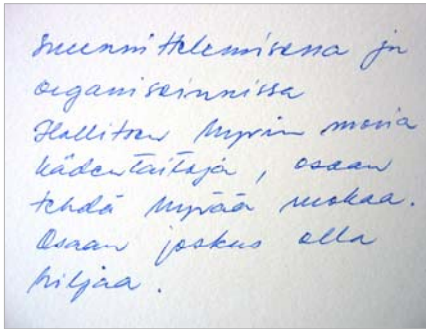 suunnittelemisessa ja
organisoinnissa
Hallitsen hyvin monia
kädentaitoja, osaan
tehdä hyvää ruokaa.
Osaan joskus olla
hiljaa.